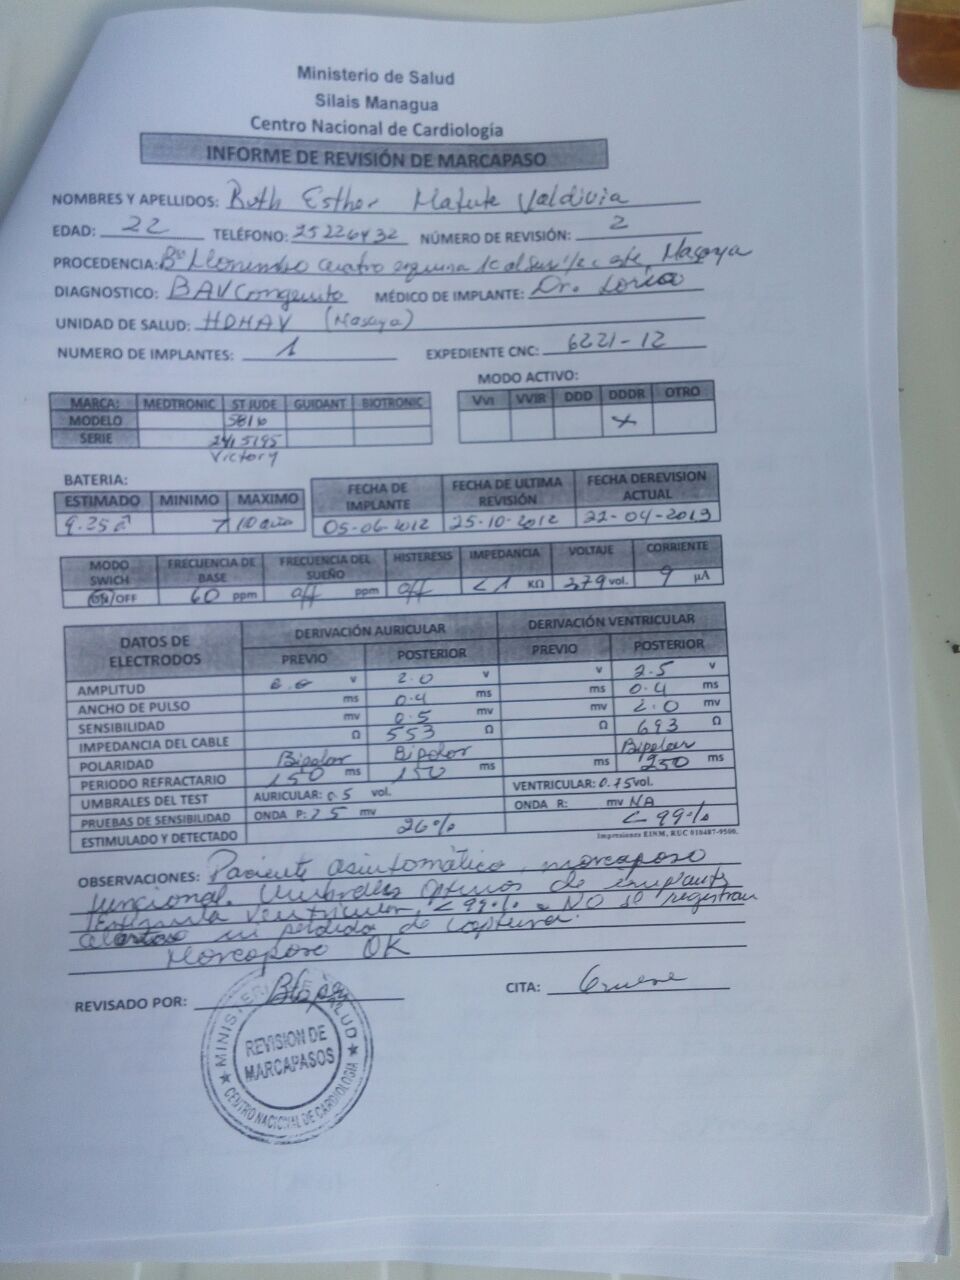 Ministerio de Salud
Silais Managua
Centro Nacional de Cardiología
INFORME DE REVISIÓN DE MARCAPASO
NOMBRES Y APELLIDOS: Ruth Esther Matute Valdivia
EDAD: 22 TELÉFONO: 25226432 NÚMERO DE REVISIÓN: 2
PROCEDENCIA: Bº cuatro esquina 1c al Sur 1/2 c , Masaya
DIAGNOSTICO: BAV Congenito MÉDICO DE IMPLANTE: Dr.
UNIDAD DE SALUD: HDHAV (Masaya)
NUMERO DE IMPLANTES: 1 EXPEDIENTE CNC: 6221-12
MODO ACTIVO:
MARCA: MEDTRONIC ST JUDE GUIDANT BIOTRONIC
MODELO 5816
SERIE
Victory
VVI VVIR DDD DDDR OTRO
X
BATERIA:
ESTIMADO MINIMO MAXIMO
9.25 a 7 10 año
FECHA DE IMPLANTE FECHA DE ULTIMA REVISIÓN FECHA DEREVISION ACTUAL
05-06-2012 25-10-2012 22-04-2013
MODO SWICH FRECUENCIA DE BASE FRECUENCIA DEL SUEÑO HISTERESIS IMPEDANCIA VOLTAJE CORRIENTE
ON/OFF 60 ppm off ppm off <1 KΩ 2.79 vol. 9 µA
DATOS DE ELECTRODOS DERIVACIÓN AURICULAR DERIVACIÓN VENTRICULAR
PREVIO POSTERIOR PREVIO POSTERIOR
AMPLITUD v 2.0 v v 2.5 v
ANCHO DE PULSO ms 0.4 ms ms 0.4 ms
SENSIBILIDAD mv 0.5 mv mv 2.0 mv
IMPEDANCIA DEL CABLE Ω 553 Ω Ω 693 Ω
POLARIDAD Bipolar Bipolar Bipolar
PERIODO REFRACTARIO 150 ms 150 ms ms 250 ms
UMBRALES DEL TEST AURICULAR: 0.5 vol. VENTRICULAR: 0.75 vol.
PRUEBAS DE SENSIBILIDAD ONDA P: 2.5 mv ONDA R: mv NA
ESTIMULADO Y DETECTADO 26% < 99%
Impresiones EINM, RUC 010487-9500.
OBSERVACIONES: Paciente asintomático, marcapaso
funcional. Umbrales optimos de
Estimula Ventricular, < 99% NO se registran
ni perdida de captura.
Marcapaso OK
REVISADO POR: CITA:
MINISTERIO DE SALUD
REVISION DE
MARCAPASOS
CENTRO NACIONAL DE CARDIOLOGIA